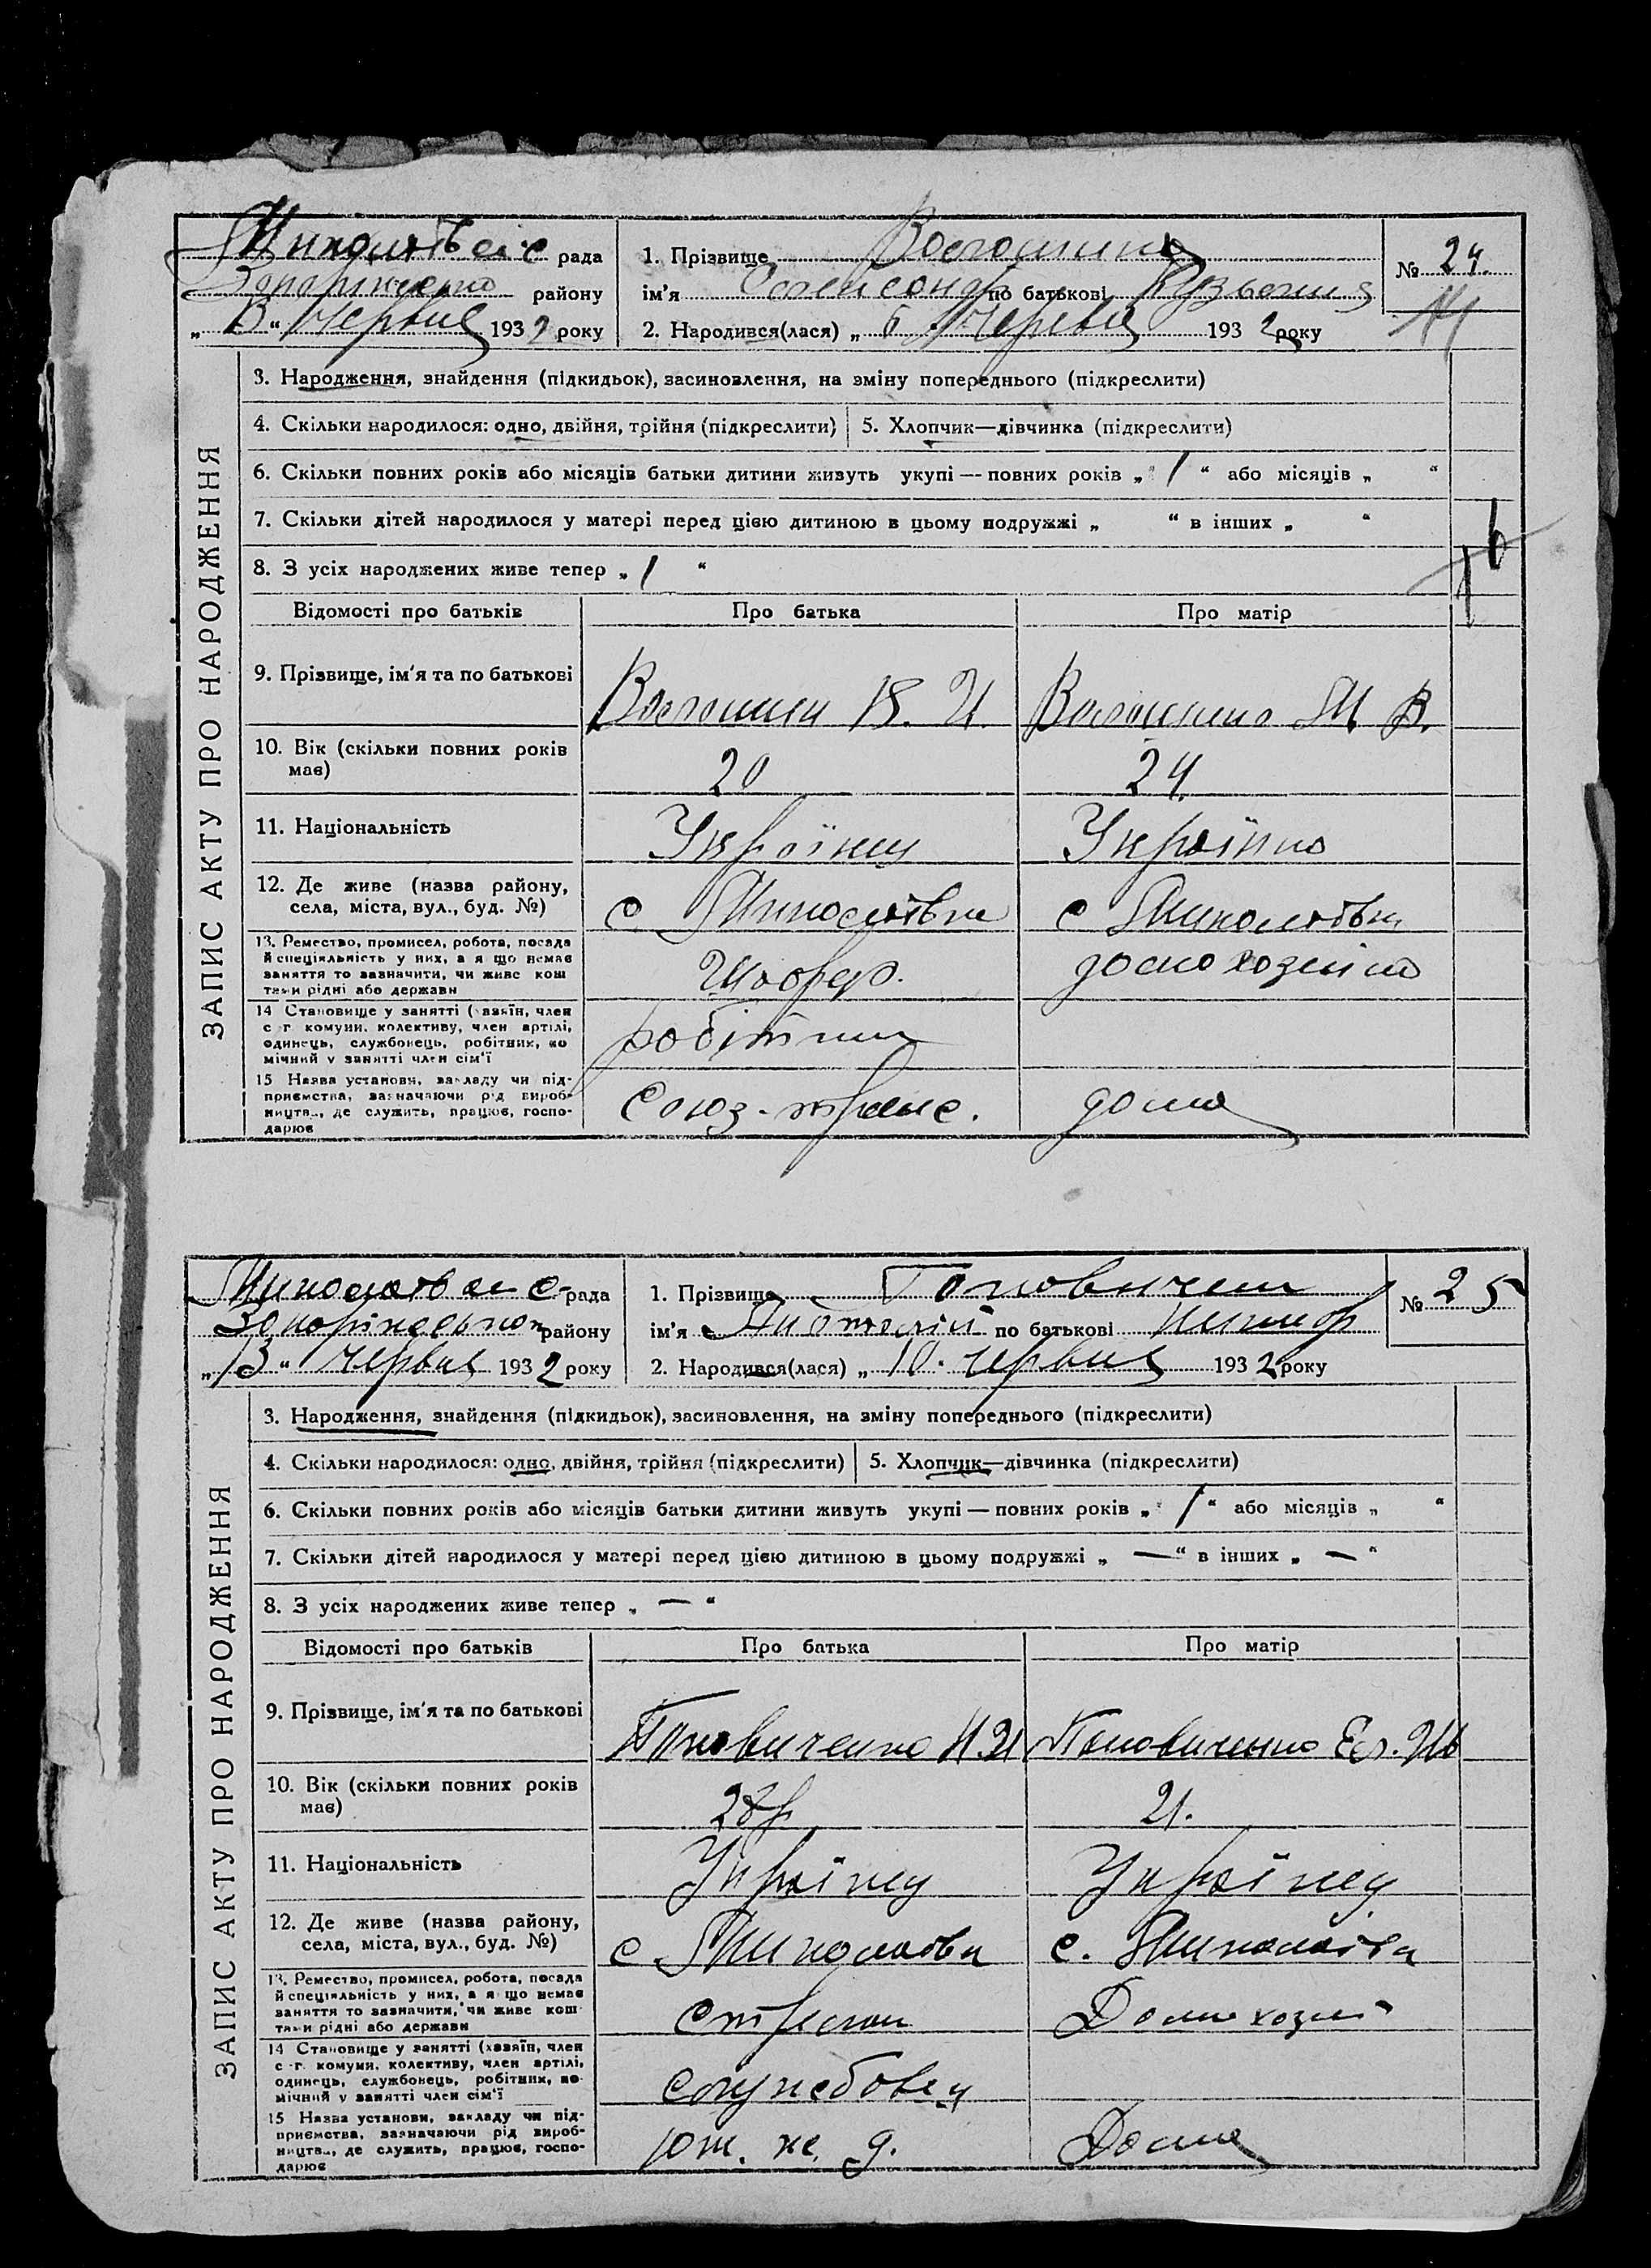 Миколаївс. с рада
району
„13“ Червня 1932 року
1. Прізвище Волошин
ім'я Олександр по батькові Кузьомич
2. Народився(лася) „ 6 Червня 1932 року
№ 24.
3. Народження, знайдення (підкидьок), засиновлення, на зміну попереднього (підкреслити)
4. Скільки народилося: одно, двійня, трійня (підкреслити) 5. Хлопчик—дівчинка (підкреслити)
6. Скільки повних років або місяців батьки дитини живуть укупі — повних років „ 1 “ або місяців „ “
7. Скільки дітей народилося у матері перед цією дитиною в цьому подружжі „ “ в інших „ “
8. З усіх народжених живе тепер „ 1 “
ЗАПИС АКТУ ПРО НАРОДЖЕННЯ
Відомості про батьків Про батька Про матір
9. Прізвище, ім'я та по батькові Волошин К. И. Волошина М В.
10. Вік (скільки повних років має) 20 24.
11. Національність Українец Українка
12. Де живе (назва району, села, міста, вул., буд. №) с Миколаївка с Миколаївка
13. Ремество, промисел, робота, посада й спеціяльність у них, а я що немає заняття то зазначити, чи живе коштами рідні або держави Шофер. домохозяйка
14 Становище у занятті (хазяїн, член с-г комуни, колективу, член артілі, одинець, службовець, робітник, помічний у занятті член сім'ї робітник
15 Назва установи, закладу чи підприємства, зазначаючи рід виробництва, де служить, працює, господарює Союз-транс. дома
Миколаївсь с-рада
району
„13“ червня 1932 року
1. Прізвище Поповичен
ім'я Анатолій по батькові Никифор
2. Народився(лася) „ 10. червня 1932 року
№ 25
3. Народження, знайдення (підкидьок), засиновлення, на зміну попереднього (підкреслити)
4. Скільки народилося: одно, двійня, трійня (підкреслити) 5. Хлопчик—дівчинка (підкреслити)
6. Скільки повних років або місяців батьки дитини живуть укупі — повних років „ 1 “ або місяців „ “
7. Скільки дітей народилося у матері перед цією дитиною в цьому подружжі „ — “ в інших „ — “
8. З усіх народжених живе тепер „ — “
ЗАПИС АКТУ ПРО НАРОДЖЕННЯ
Відомості про батьків Про батька Про матір
9. Прізвище, ім'я та по батькові Поповиченко Н. И Поповиченко
10. Вік (скільки повних років має) 21.
11. Національність Українец Українец
12. Де живе (назва району, села, міста, вул., буд. №) с Миколаївка с. Миколаївка
13. Ремество, промисел, робота, посада й спеціяльність у них, а я що немає заняття то зазначити, чи живе коштами рідні або держави Домохозяй
14 Становище у занятті (хазяїн, член с-г. комуни, колективу, член артілі, одинець, службовець, робітник, помічний у занятті член сім'ї службовец
15 Назва установи, закладу чи підприємства, зазначаючи рід виробництва, де служить, працює, господарює Юж. ж. д. Дома